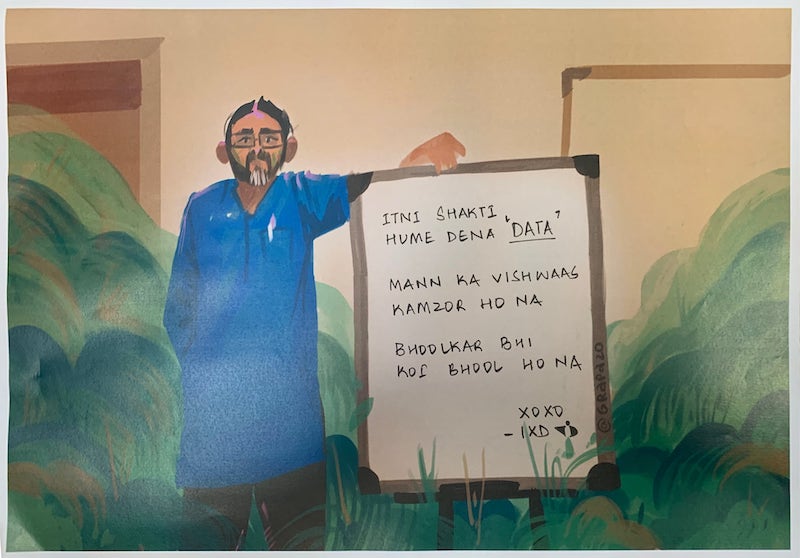 ITNI SHAKTI
HUME DENA "DATA"
MANN KA VISHWAAS
KAMZOR HO NA
BHOOLKAR BHI
KOI BHOOL HO NA
XOXO
- IXD
@GRAPAZO